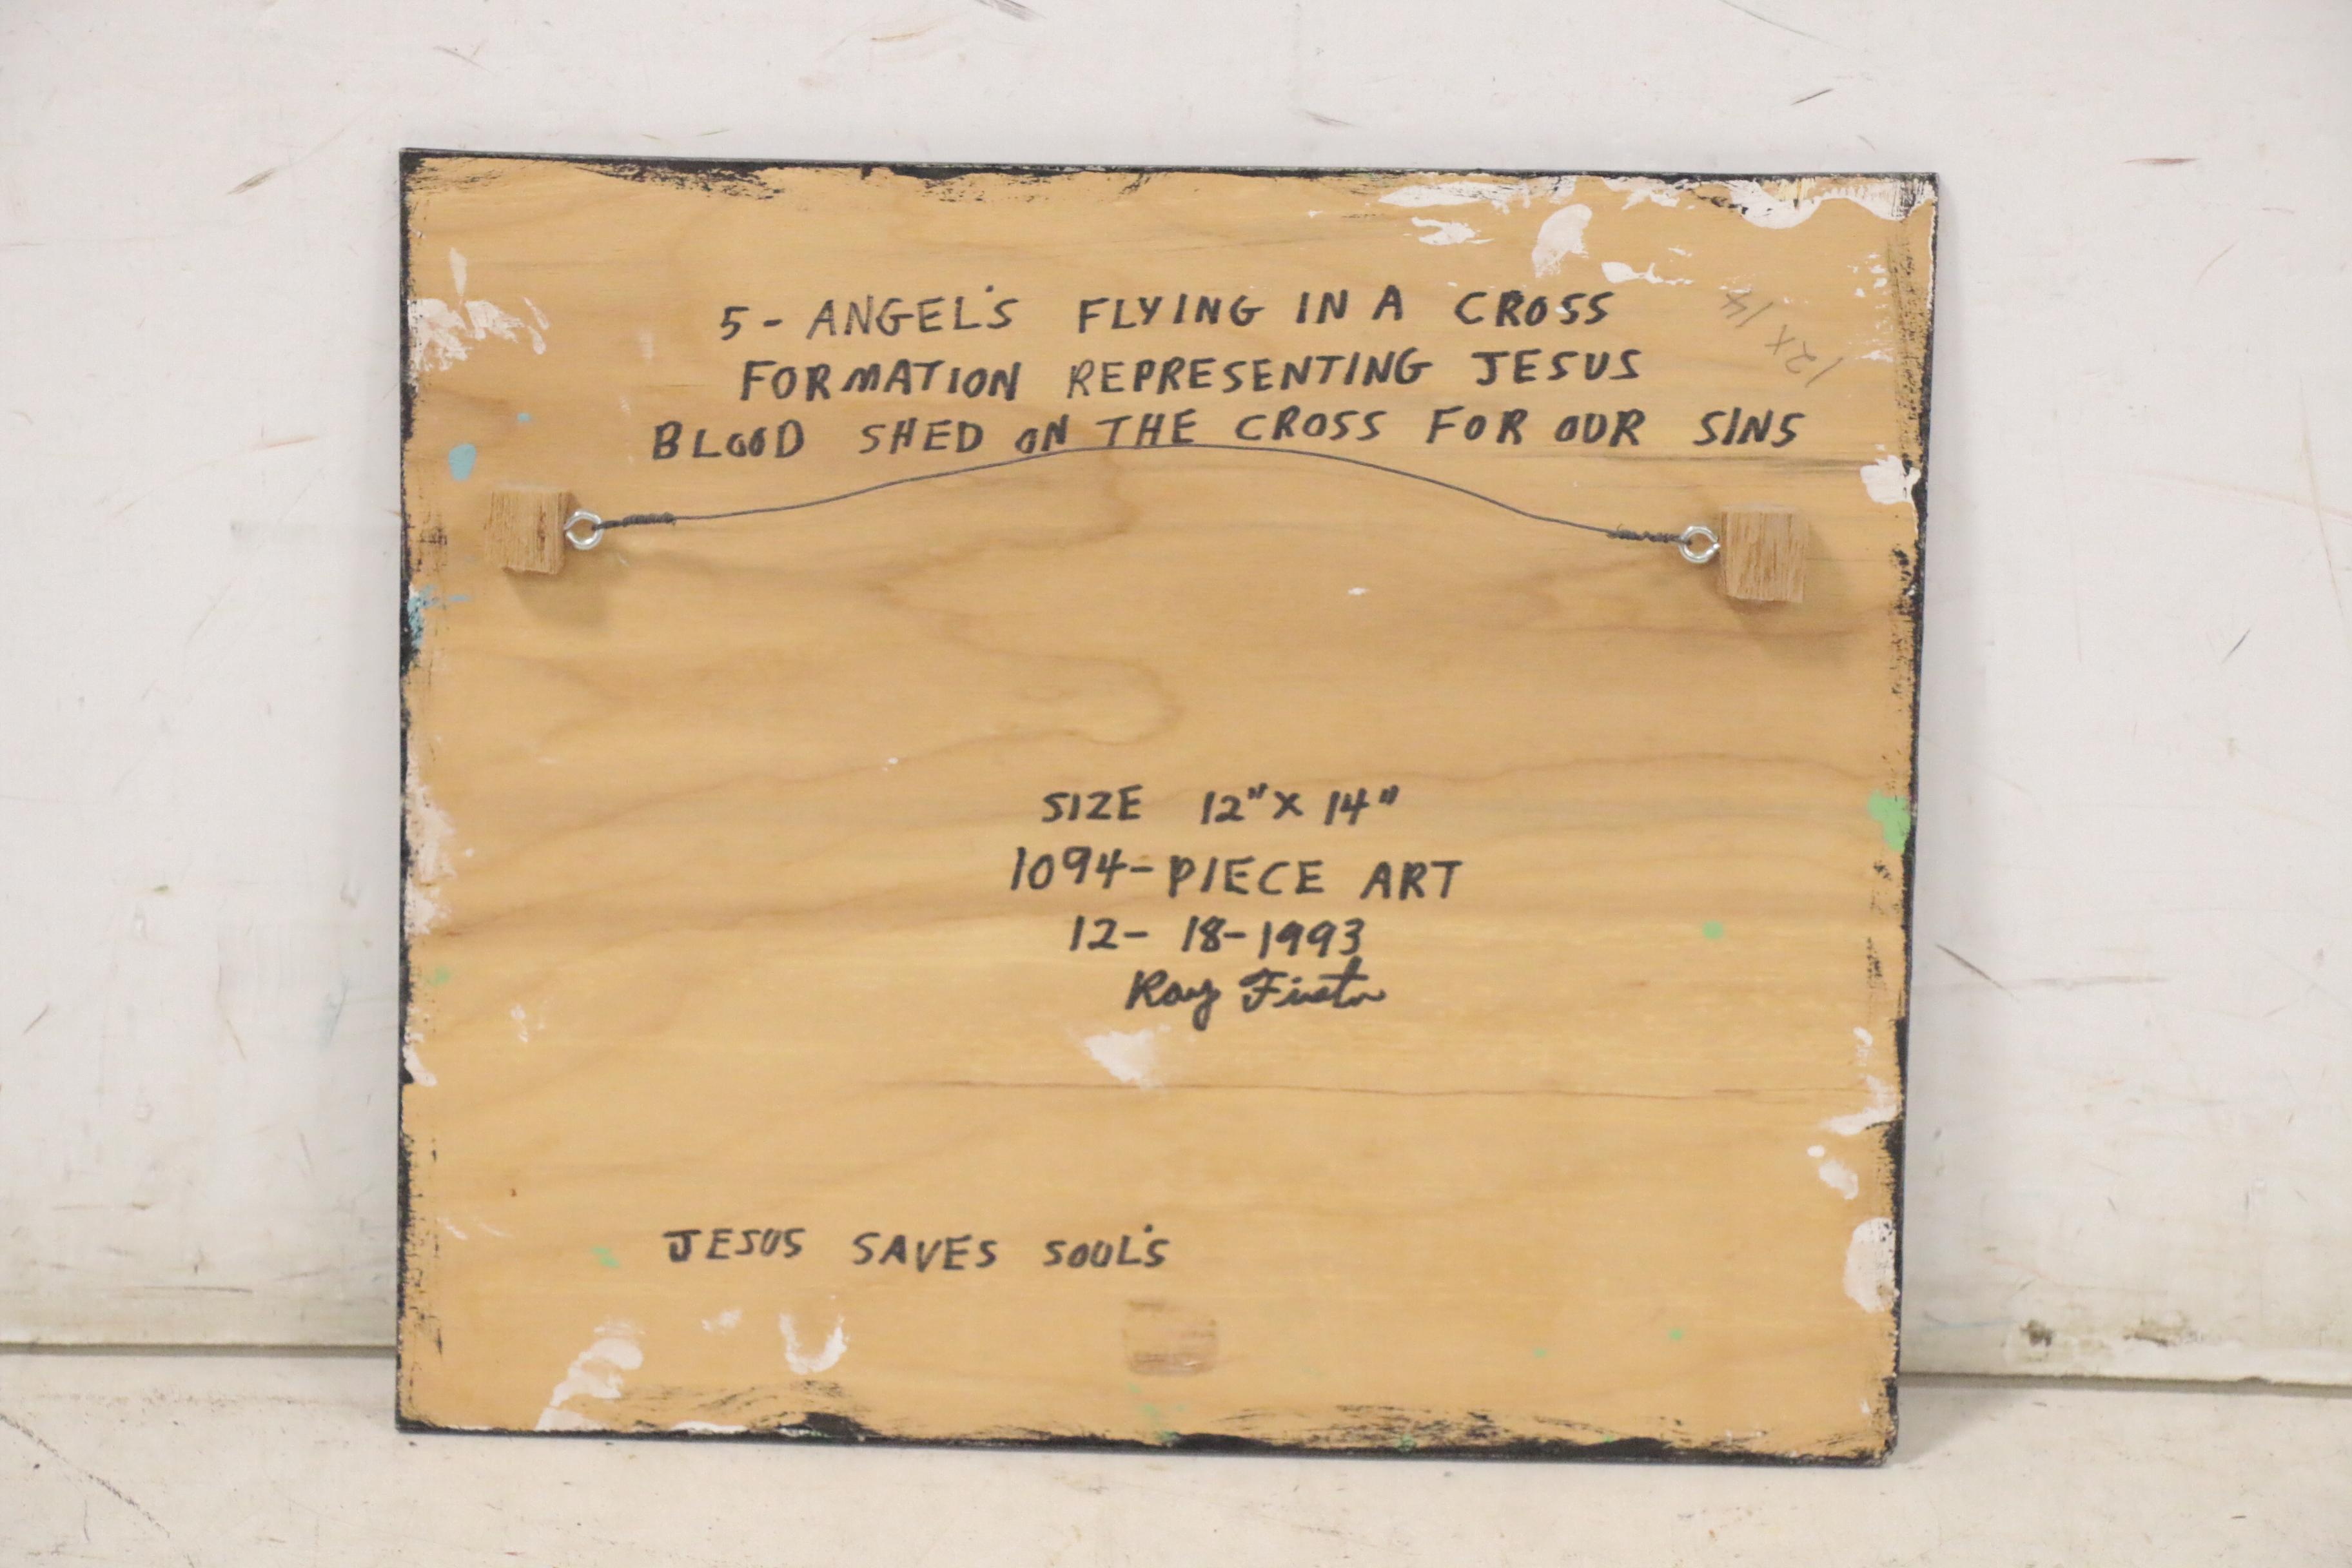 5- ANGEL'S FLYING IN A CROSS
FORMATION REPRESENTING JESUS
BLOOD SHED ON THE CROSS FOR OUR SINS
12X14
SIZE 12" X 14"
1094-PIECE ART
12-18-1993
Ray
JESUS SAVES SOUL'S